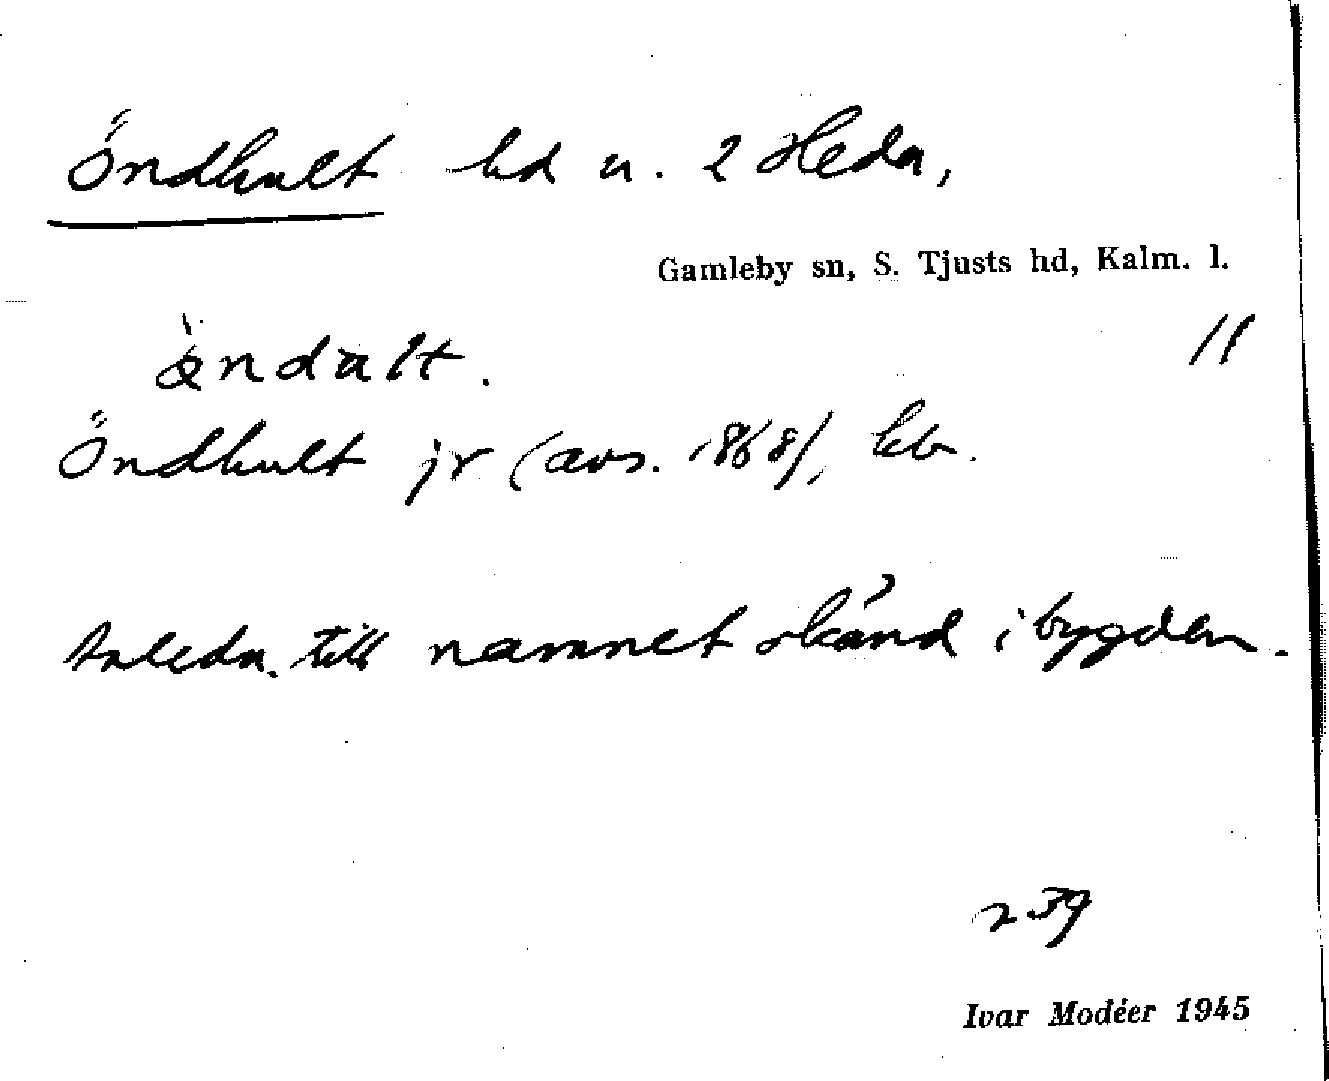 Öndhult hd u. 2 Heda,
Gamleby sn, S. Tjusts hd, Kalm. l.
11
öndult.
Öndhult jr (avs. 1868), kb.
Anledn. till namnet okänd i bygden.
239
Ivar Modéer 1945